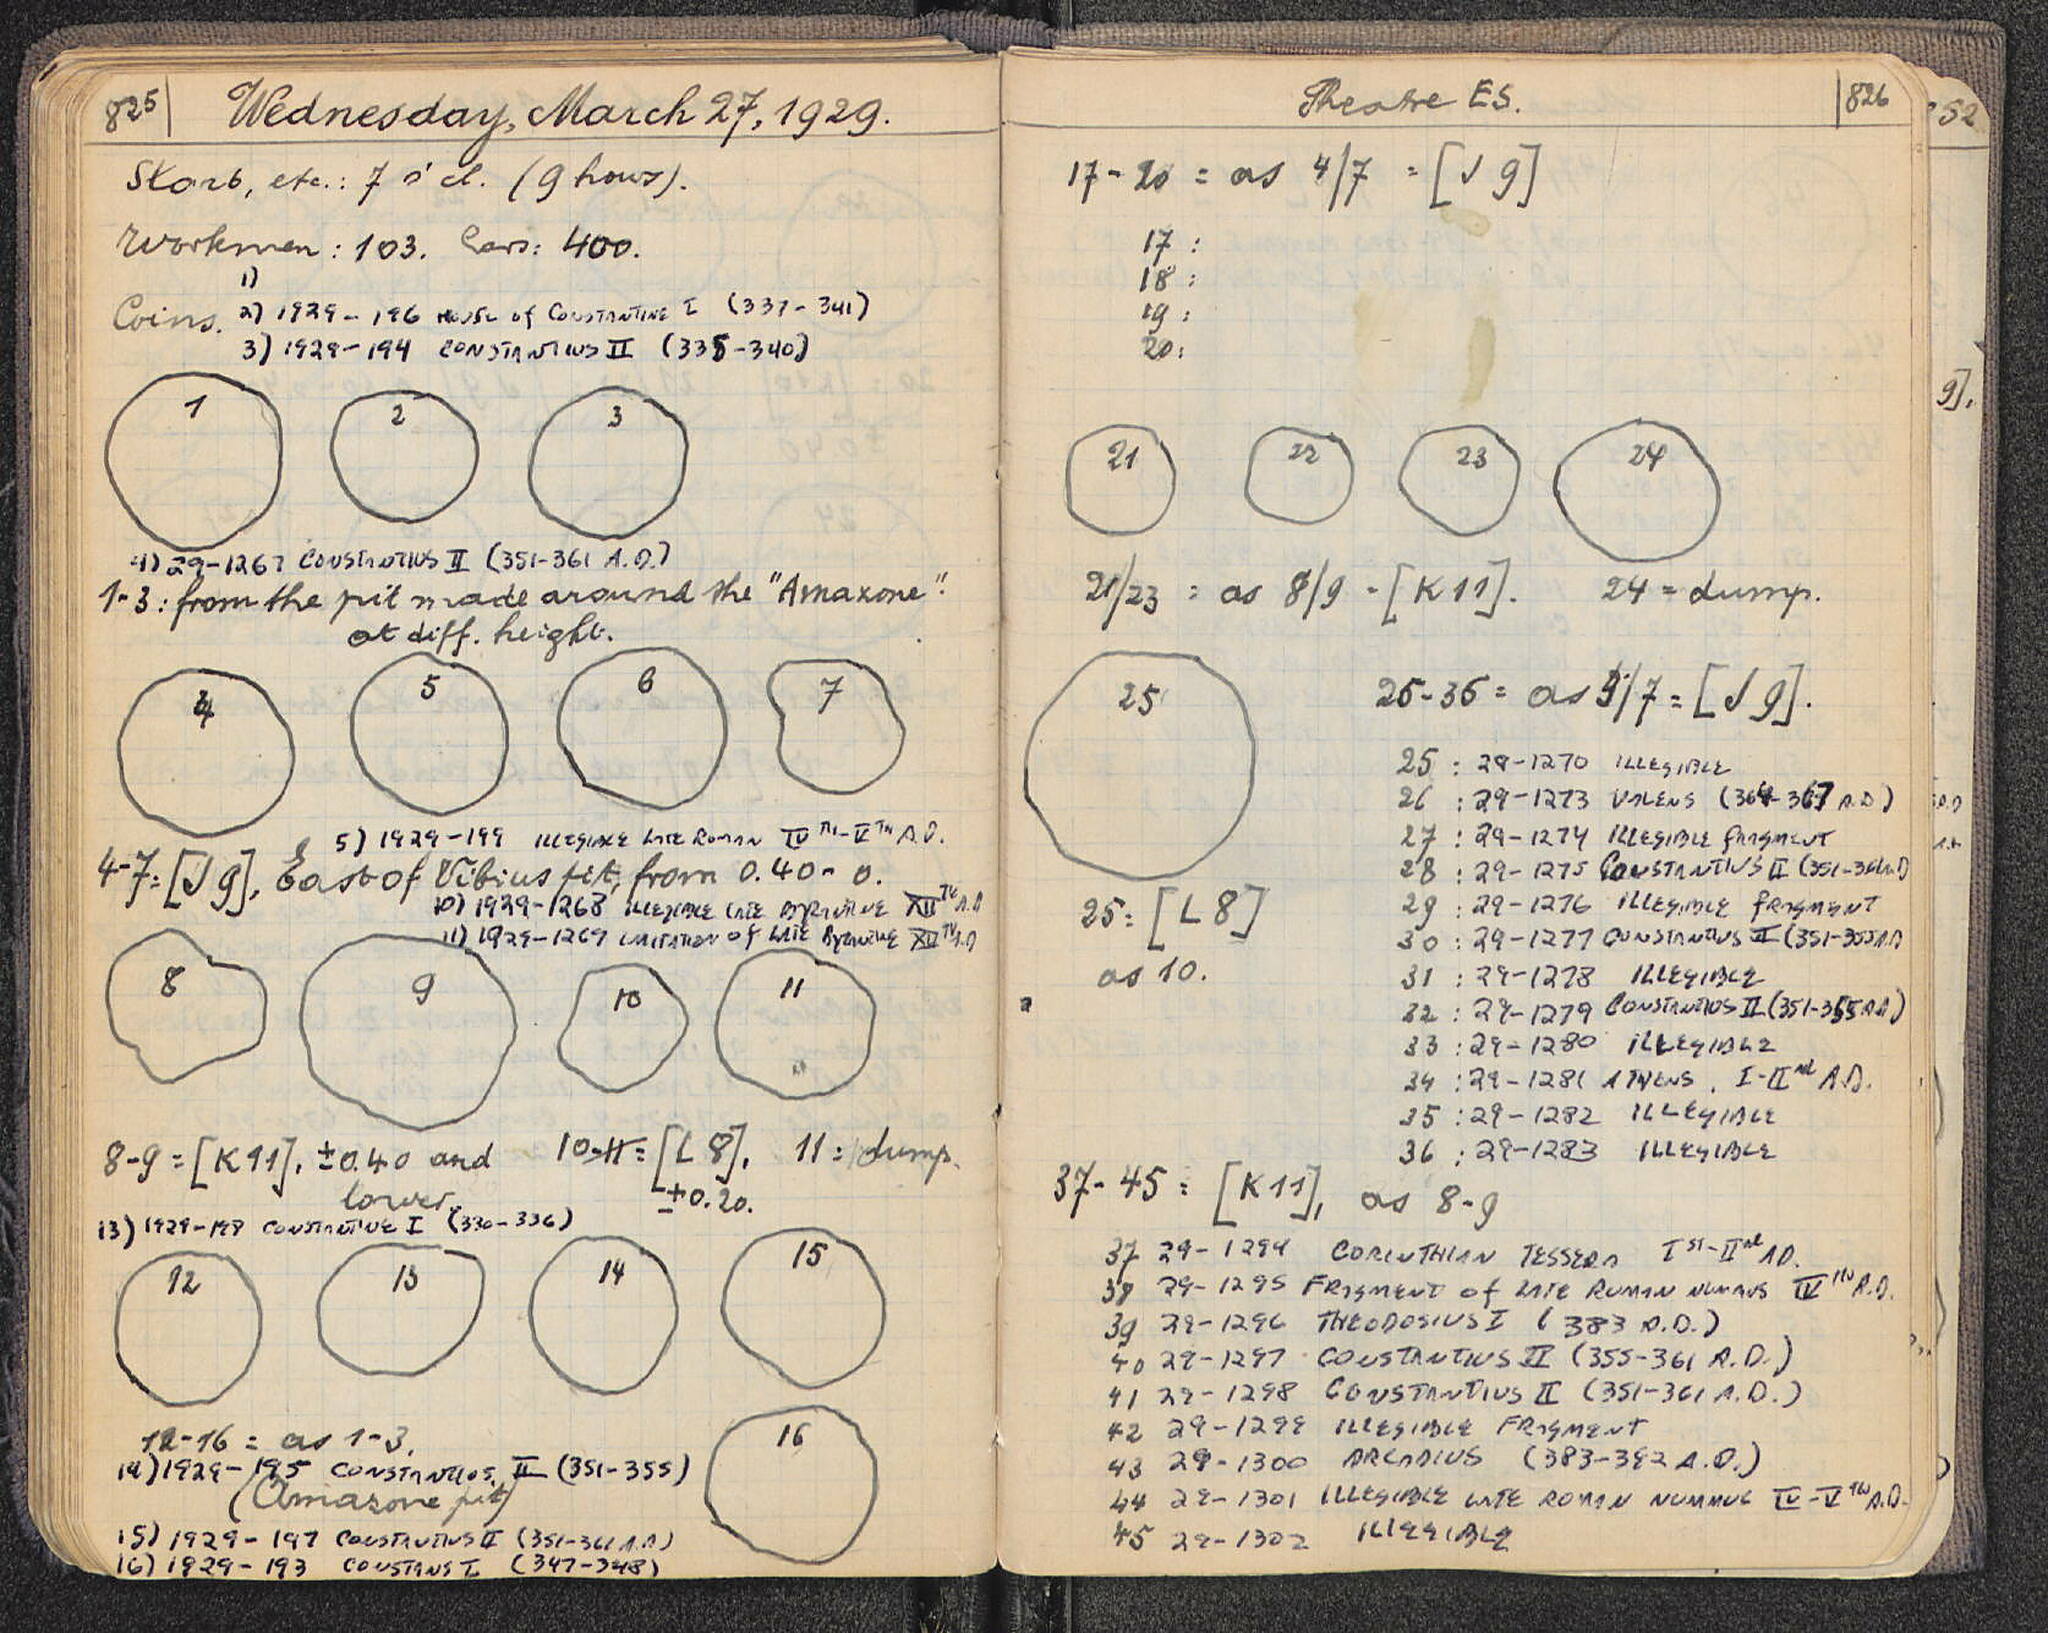 825
Wednesday, March 27, 1929.
Start, etc.: 7 o'cl. (9 hours).
Workmen: 103. Cars: 400.
1)
Coins. 2) 1929-196 House of Constantine I (337-341)
3) 1929-194 Constantius II (335-340)
1 2 3
4) 29-1267 Constantius II (351-361 A.D.)
1-3: from the pit made around the "Amazone".
at diff. height.
4 5 6 7
5) 1929-199 Illegible Late Roman IV TH-V TH A.D.
4-7=[J9], East of Vibius pit, from 0.40-0.
10) 1929-1268 Illegible Late Byzantine XII TH A.D
11) 1929-1269 Imitation of Late Byzantine XII TH A.D
8 9 10 11
8-9=[K11], ±0.40 and 10-11=[L8], 11=dump.
lower. ±0.20.
13) 1929-198 Constantine I (330-336)
12 13 14 15
12-16 = as 1-3.
16
14) 1929-195 Constantios II (351-355)
(Amazone pit)
15) 1929-197 Constantius II (351-361 A.D)
16) 1929-193 Constans I (347-348)
Theatre ES.
826
17-20 = as 4/7 = [J9]
17:
18:
19:
20:
21 22 23 24
21/23 = as 8/9 - [K11]. 24 = dump.
25
26-36 = as 5/7 = [J9].
25 : 29-1270 Illegible
26 : 29-1273 Valens (364-367 A.D)
27 : 29-1274 Illegible fragment
28 : 29-1275 Constantius II (351-361 A.D)
25= [L8]
29 : 29-1276 Illegible fragment
30 : 29-1277 Constantius II (351-355 A.D
as 10.
31 : 29-1278 Illegible
32 : 29-1279 Constantius II (351-355 A.D)
33 : 29-1280 Illegible
34 : 29-1281 Athens, I-II nd A.D.
35 : 29-1282 Illegible
36 : 29-1283 Illegible
37-45 = [K11], as 8-9
37 29-1294 Corinthian Tessera I ST-II nd A.D.
38 29-1295 Fragment of Late Roman nummus IV TH A.D.
39 29-1296 Theodosius I (383 A.D.)
40 29-1297 Constantius II (355-361 A.D.)
41 29-1298 Constantius II (351-361 A.D.)
42 29-1299 Illegible Fragment
43 29-1300 Arcadius (383-392 A.D.)
44 29-1301 Illegible Late Roman nummus IV-V TH A.D.
45 29-1302 Illegible
52
9].